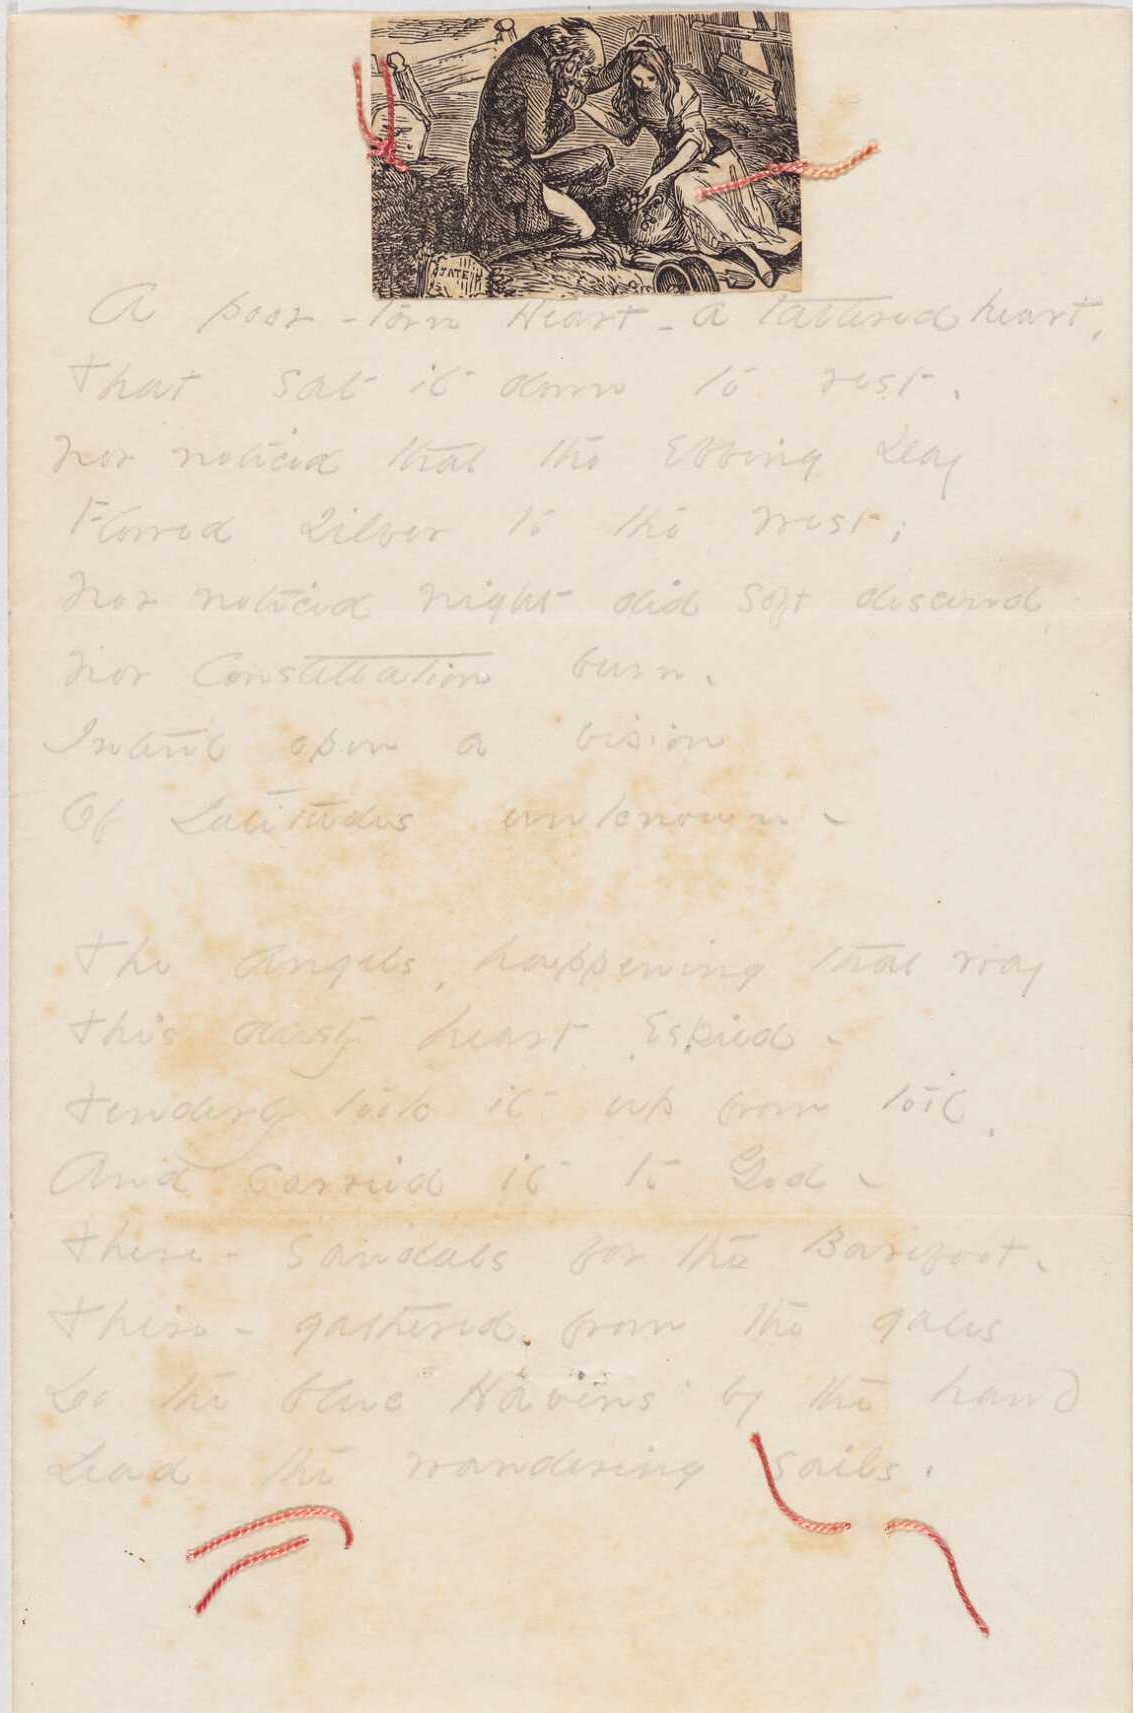 A poor - torn Heart - a tattered heart,
That sat it down to rest -
Nor noticed that the Ebbing Day
Flowed Silver to the West;
Nor noticed night did soft descend,
Nor Constellation burn -
Intent opon a vision
Of Latitudes unknown -
The Angels, happening that way
This dusty heart Espied -
Tenderly took it up from toil,
And carried it to God -
There - Sandals for the Barefoot -
There - gathered from the gales
Do the blue Havens by the hand
Lead the wandering sails.